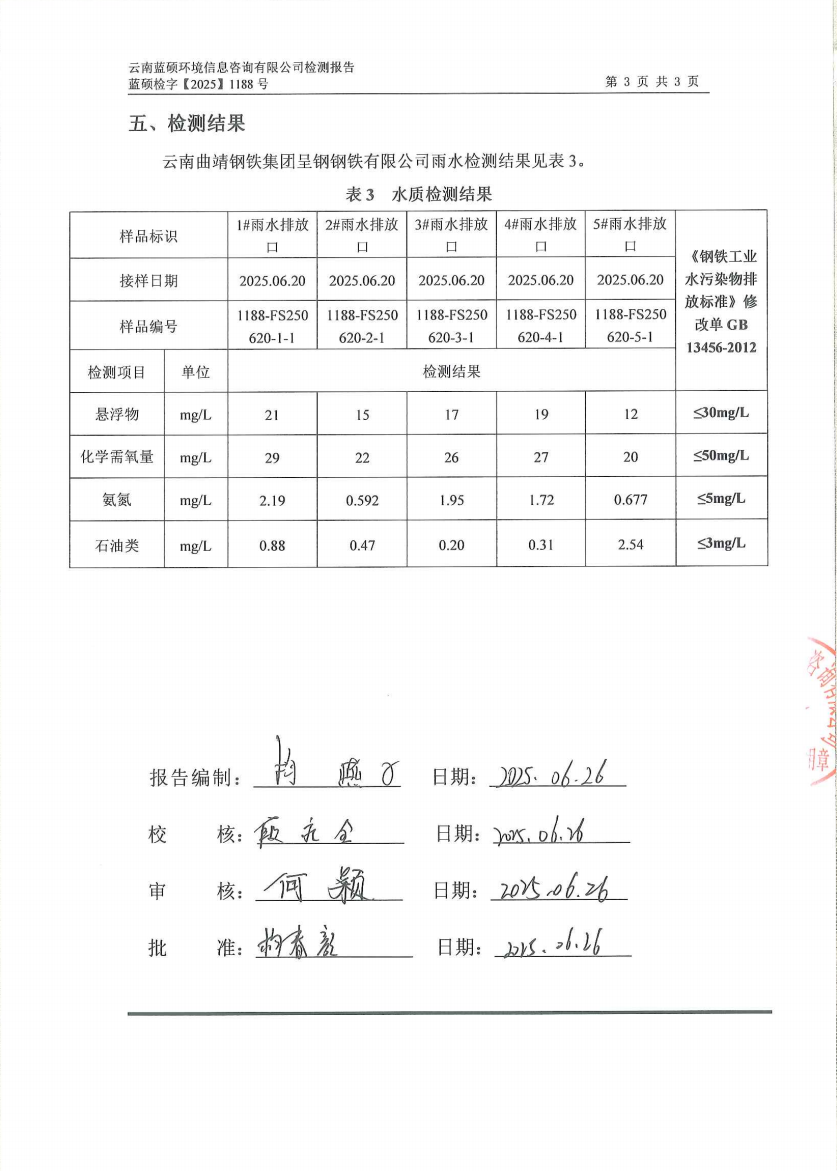 云南蓝硕环境信息咨询有限公司检测报告
蓝硕检字【2025】1188 号
第 3 页 共 3 页
五、检测结果
云南曲靖钢铁集团呈钢钢铁有限公司雨水检测结果见表 3。
表 3 水质检测结果
样品标识 1#雨水排放口 2#雨水排放口 3#雨水排放口 4#雨水排放口 5#雨水排放口 《钢铁工业水污染物排放标准》修改单 GB 13456-2012
接样日期 2025.06.20 2025.06.20 2025.06.20 2025.06.20 2025.06.20
样品编号 1188-FS250620-1-1 1188-FS250620-2-1 1188-FS250620-3-1 1188-FS250620-4-1 1188-FS250620-5-1
检测项目 单位 检测结果
悬浮物 mg/L 21 15 17 19 12 ≤30mg/L
化学需氧量 mg/L 29 22 26 27 20 ≤50mg/L
氨氮 mg/L 2.19 0.592 1.95 1.72 0.677 ≤5mg/L
石油类 mg/L 0.88 0.47 0.20 0.31 2.54 ≤3mg/L
报告编制： 日期： 2025.06.26
校 核： 日期： 2025.06.26
审 核：何颖 日期： 2025.06.26
批 准： 日期： 2025.06.26